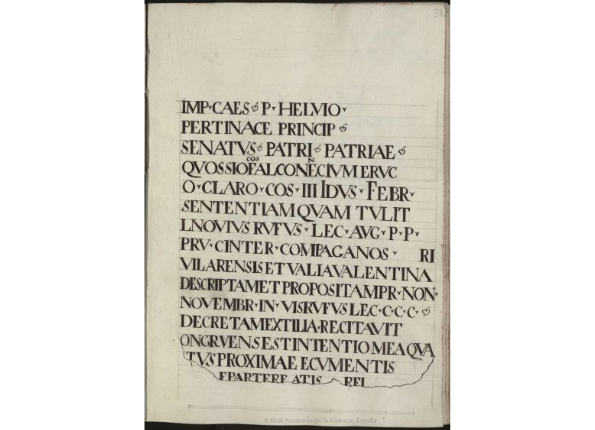 IMP·CAES P·HELVIO·
PERTINACE PRINCIP
SENATVS PATRI PATRIAE
COS N
QVOSSIOFALCONECIVMERVC
O·CLARO·COS·III IDVS·FEBR·
SENTENTIAM QVAM TVLIT
LNOVIVS RVFVS·LEC·AVG·P·P·
PRV·CINTER·COMPAGANOS· RI
VILARENSIS ET VALIAVALENTINA
DESCRIPTAM ET PROPOSITAMPR·NON·
NOVEMBR·IN·VISRVFVS LEC·C·C·C·
DECRETAMEXTILIA·RECITAVIT
ONGRVENS EST INTENTIO MEA QVA
TVS PROXIMAE ECVMENTIS
EPARTERE ATIS REI
© Real Academia de la Historia. España